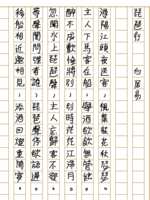 琵琶行　白居易
潯陽江頭夜送客，楓葉荻花秋瑟瑟。
主人下馬客在船，舉酒欲飲無管絃。
醉不成歡慘將別，別時茫茫江浸月。
忽聞水上琵琶聲，主人忘歸客不發。
尋聲闇問彈者誰？琵琶聲停欲語遲。
移船相近邀相見，添酒回燈重開宴。